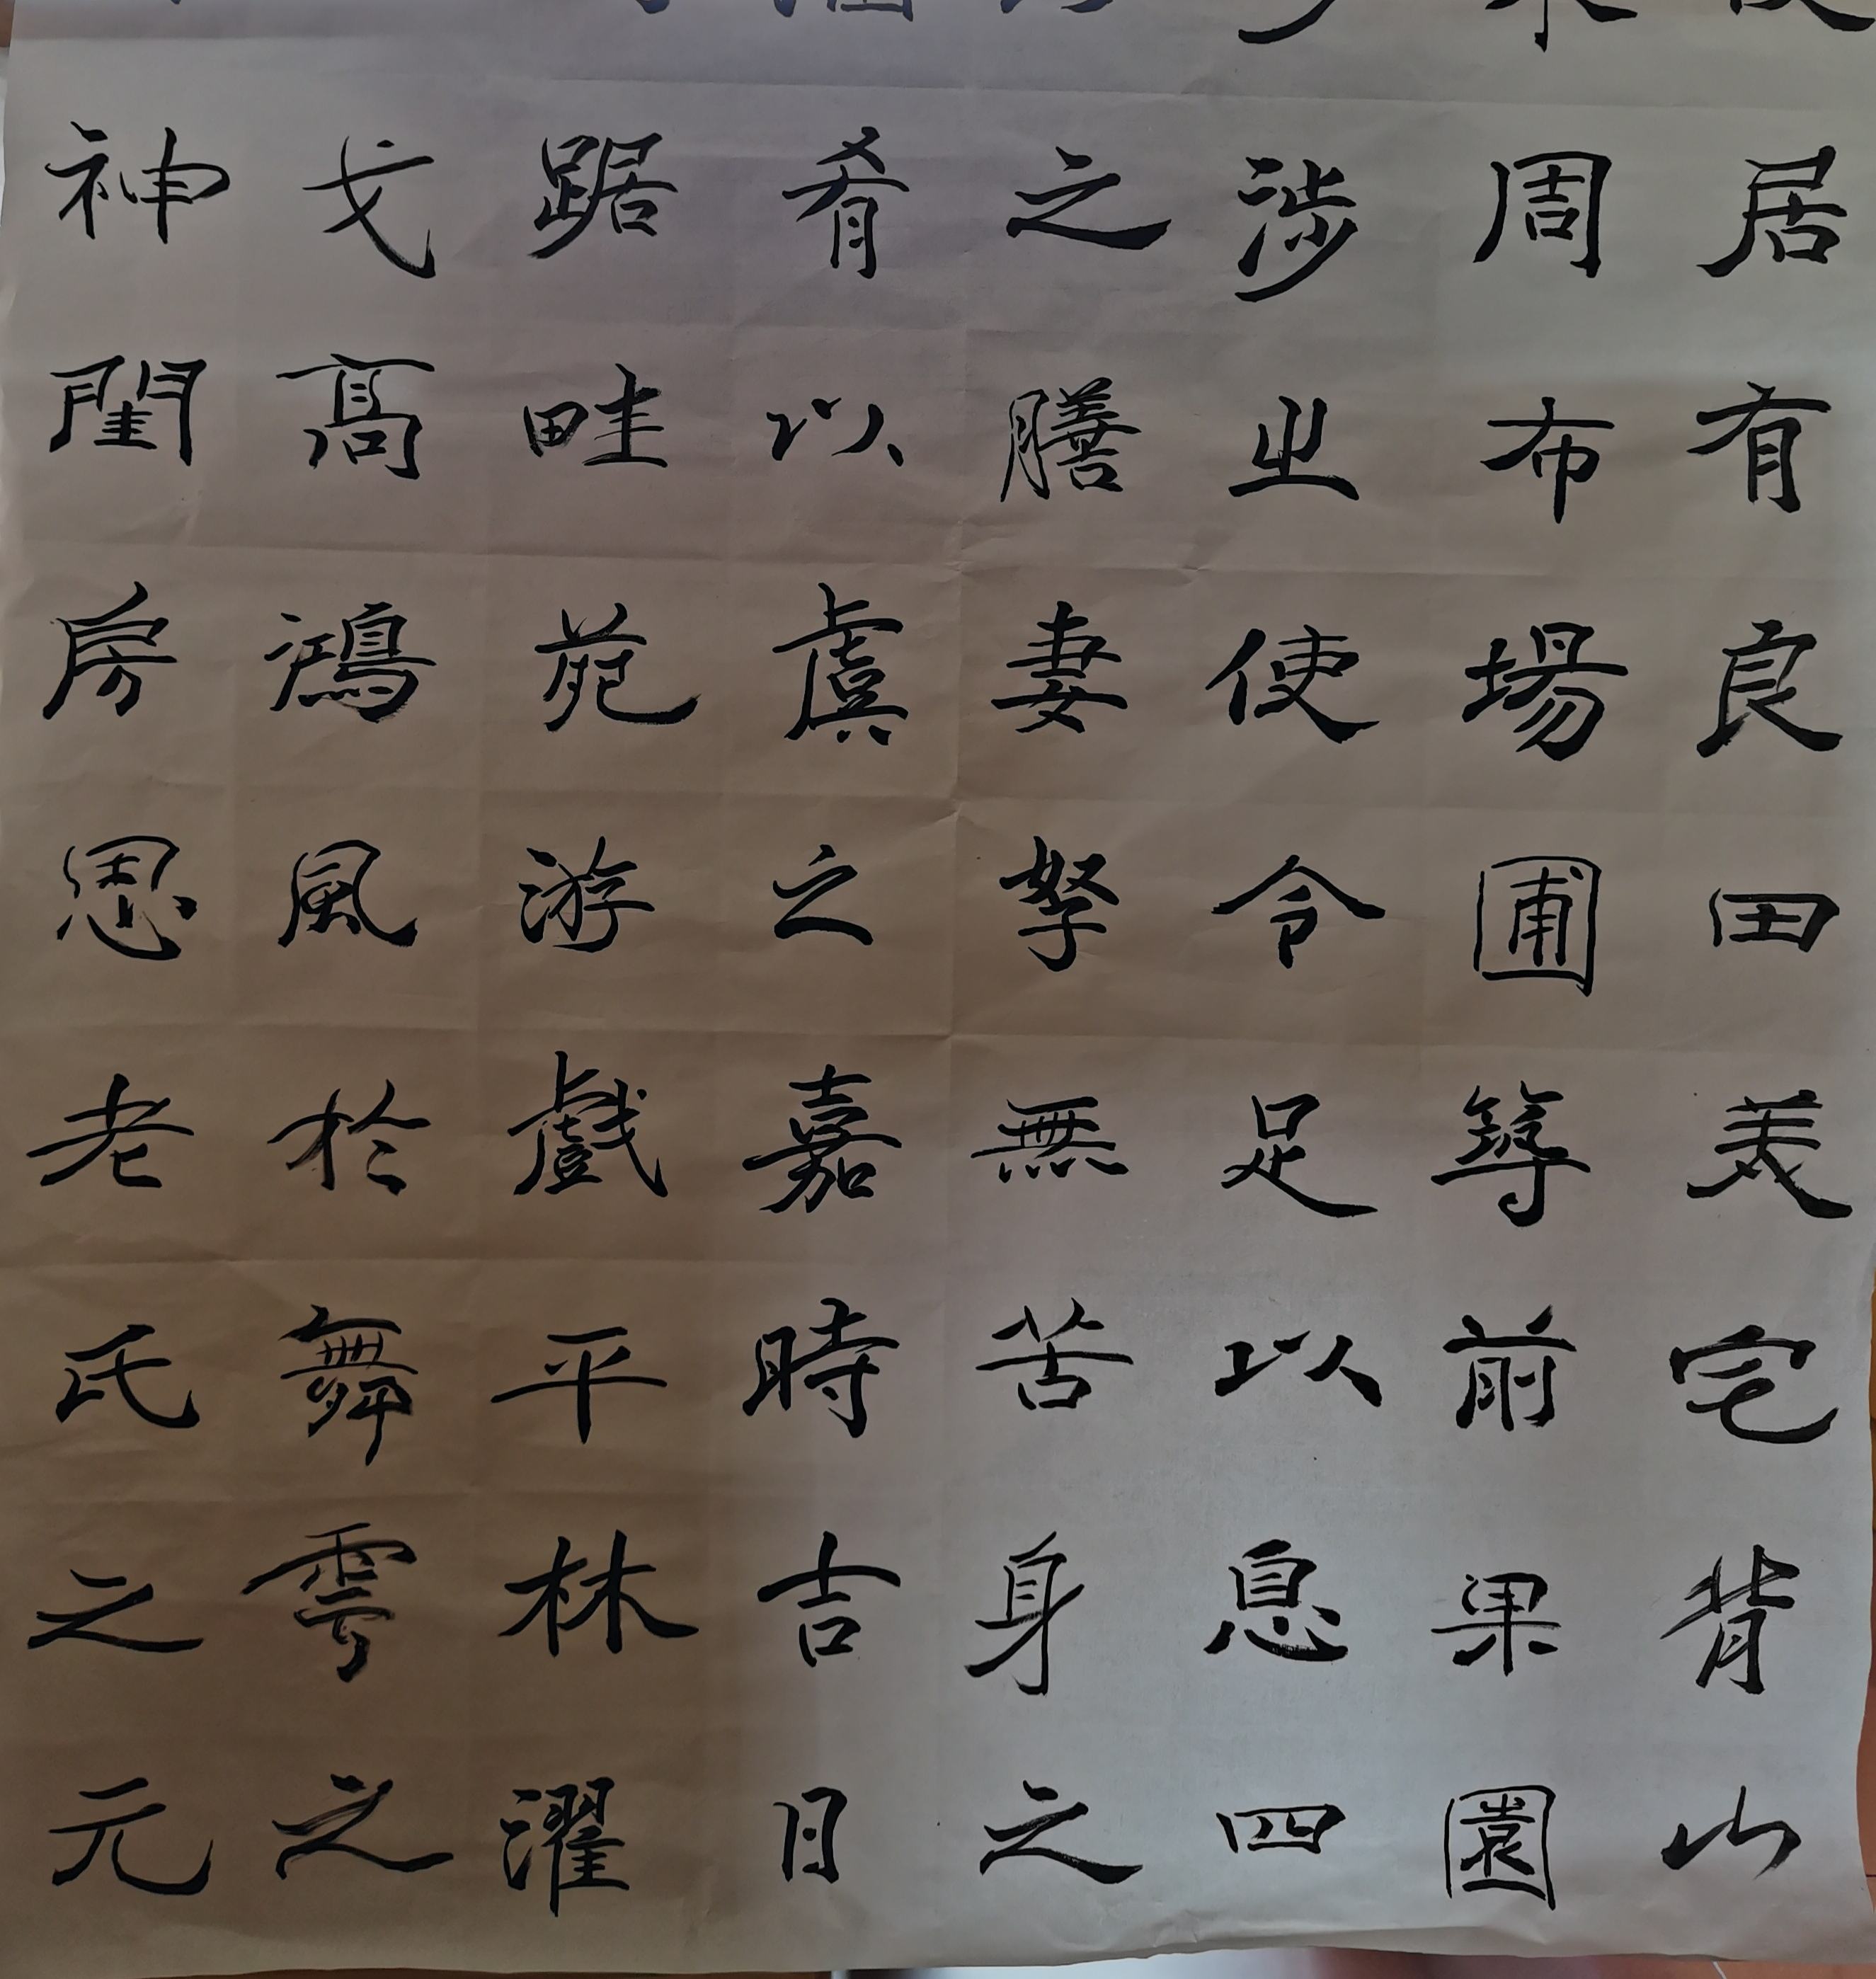 居有良田美宅背山
周布場圃築前果園
涉止使令足以息四
之膳妻孥無苦身之
肴以虞之嘉時吉日
踞畦苑游戲平林濯
弋高鴻風於舞雩之
神閨房思老氏之元